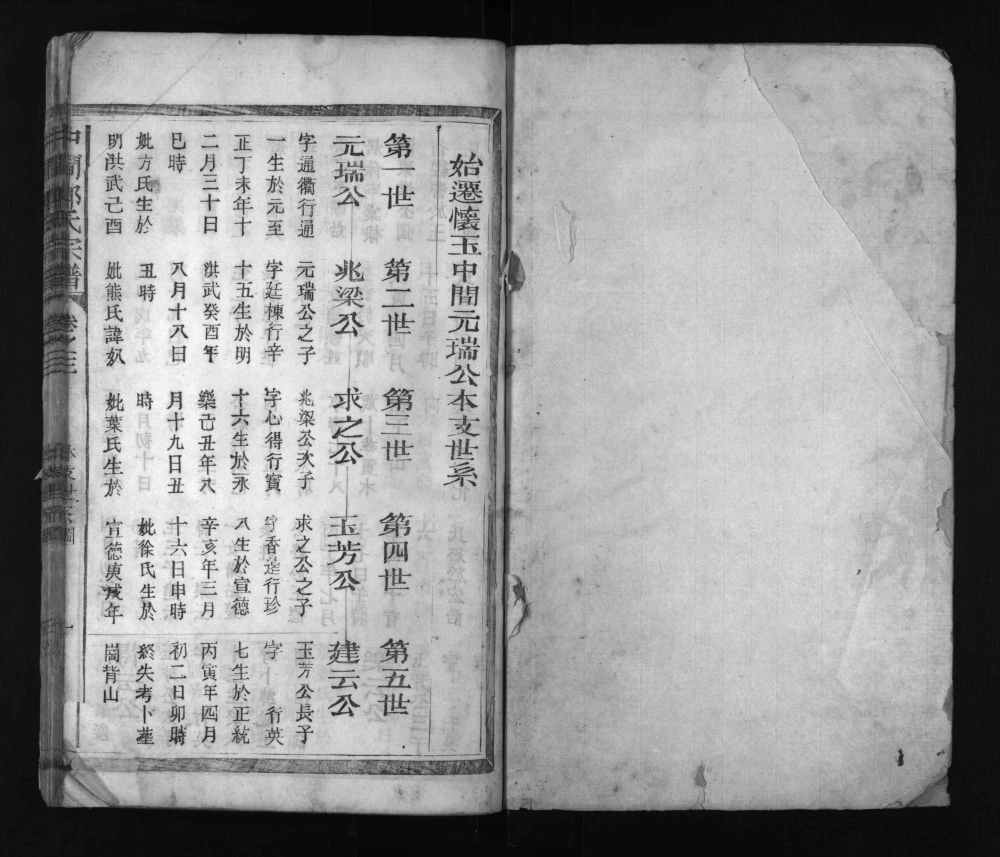 始遷懷玉中間元瑞公本支世系
第一世
元瑞公
字通衢行通
一生於元至
正丁未年十
二月三十日
巳時
妣方氏生於
明洪武己酉
第二世
兆梁公
元瑞公之子
字廷棟行辛
十五生於明
洪武癸酉年
八月十八日
丑時
妣熊氏諱奴
第三世
求之公
兆梁公次子
字心得行寳
十六生於永
樂己丑年八
月十九日丑
時
妣葉氏生於
第四世
玉芳公
求之公之子
字香遠行珍
八生於宣德
辛亥年三月
十六日申時
妣徐氏生於
宣德庚戌年
第五世
建云公
玉芳公長子
字　行英
七生於正統
丙寅年四月
初二日卯時
終失考卜塟
崗背山
中間氏宗譜
卷之三
本支世系圖
一